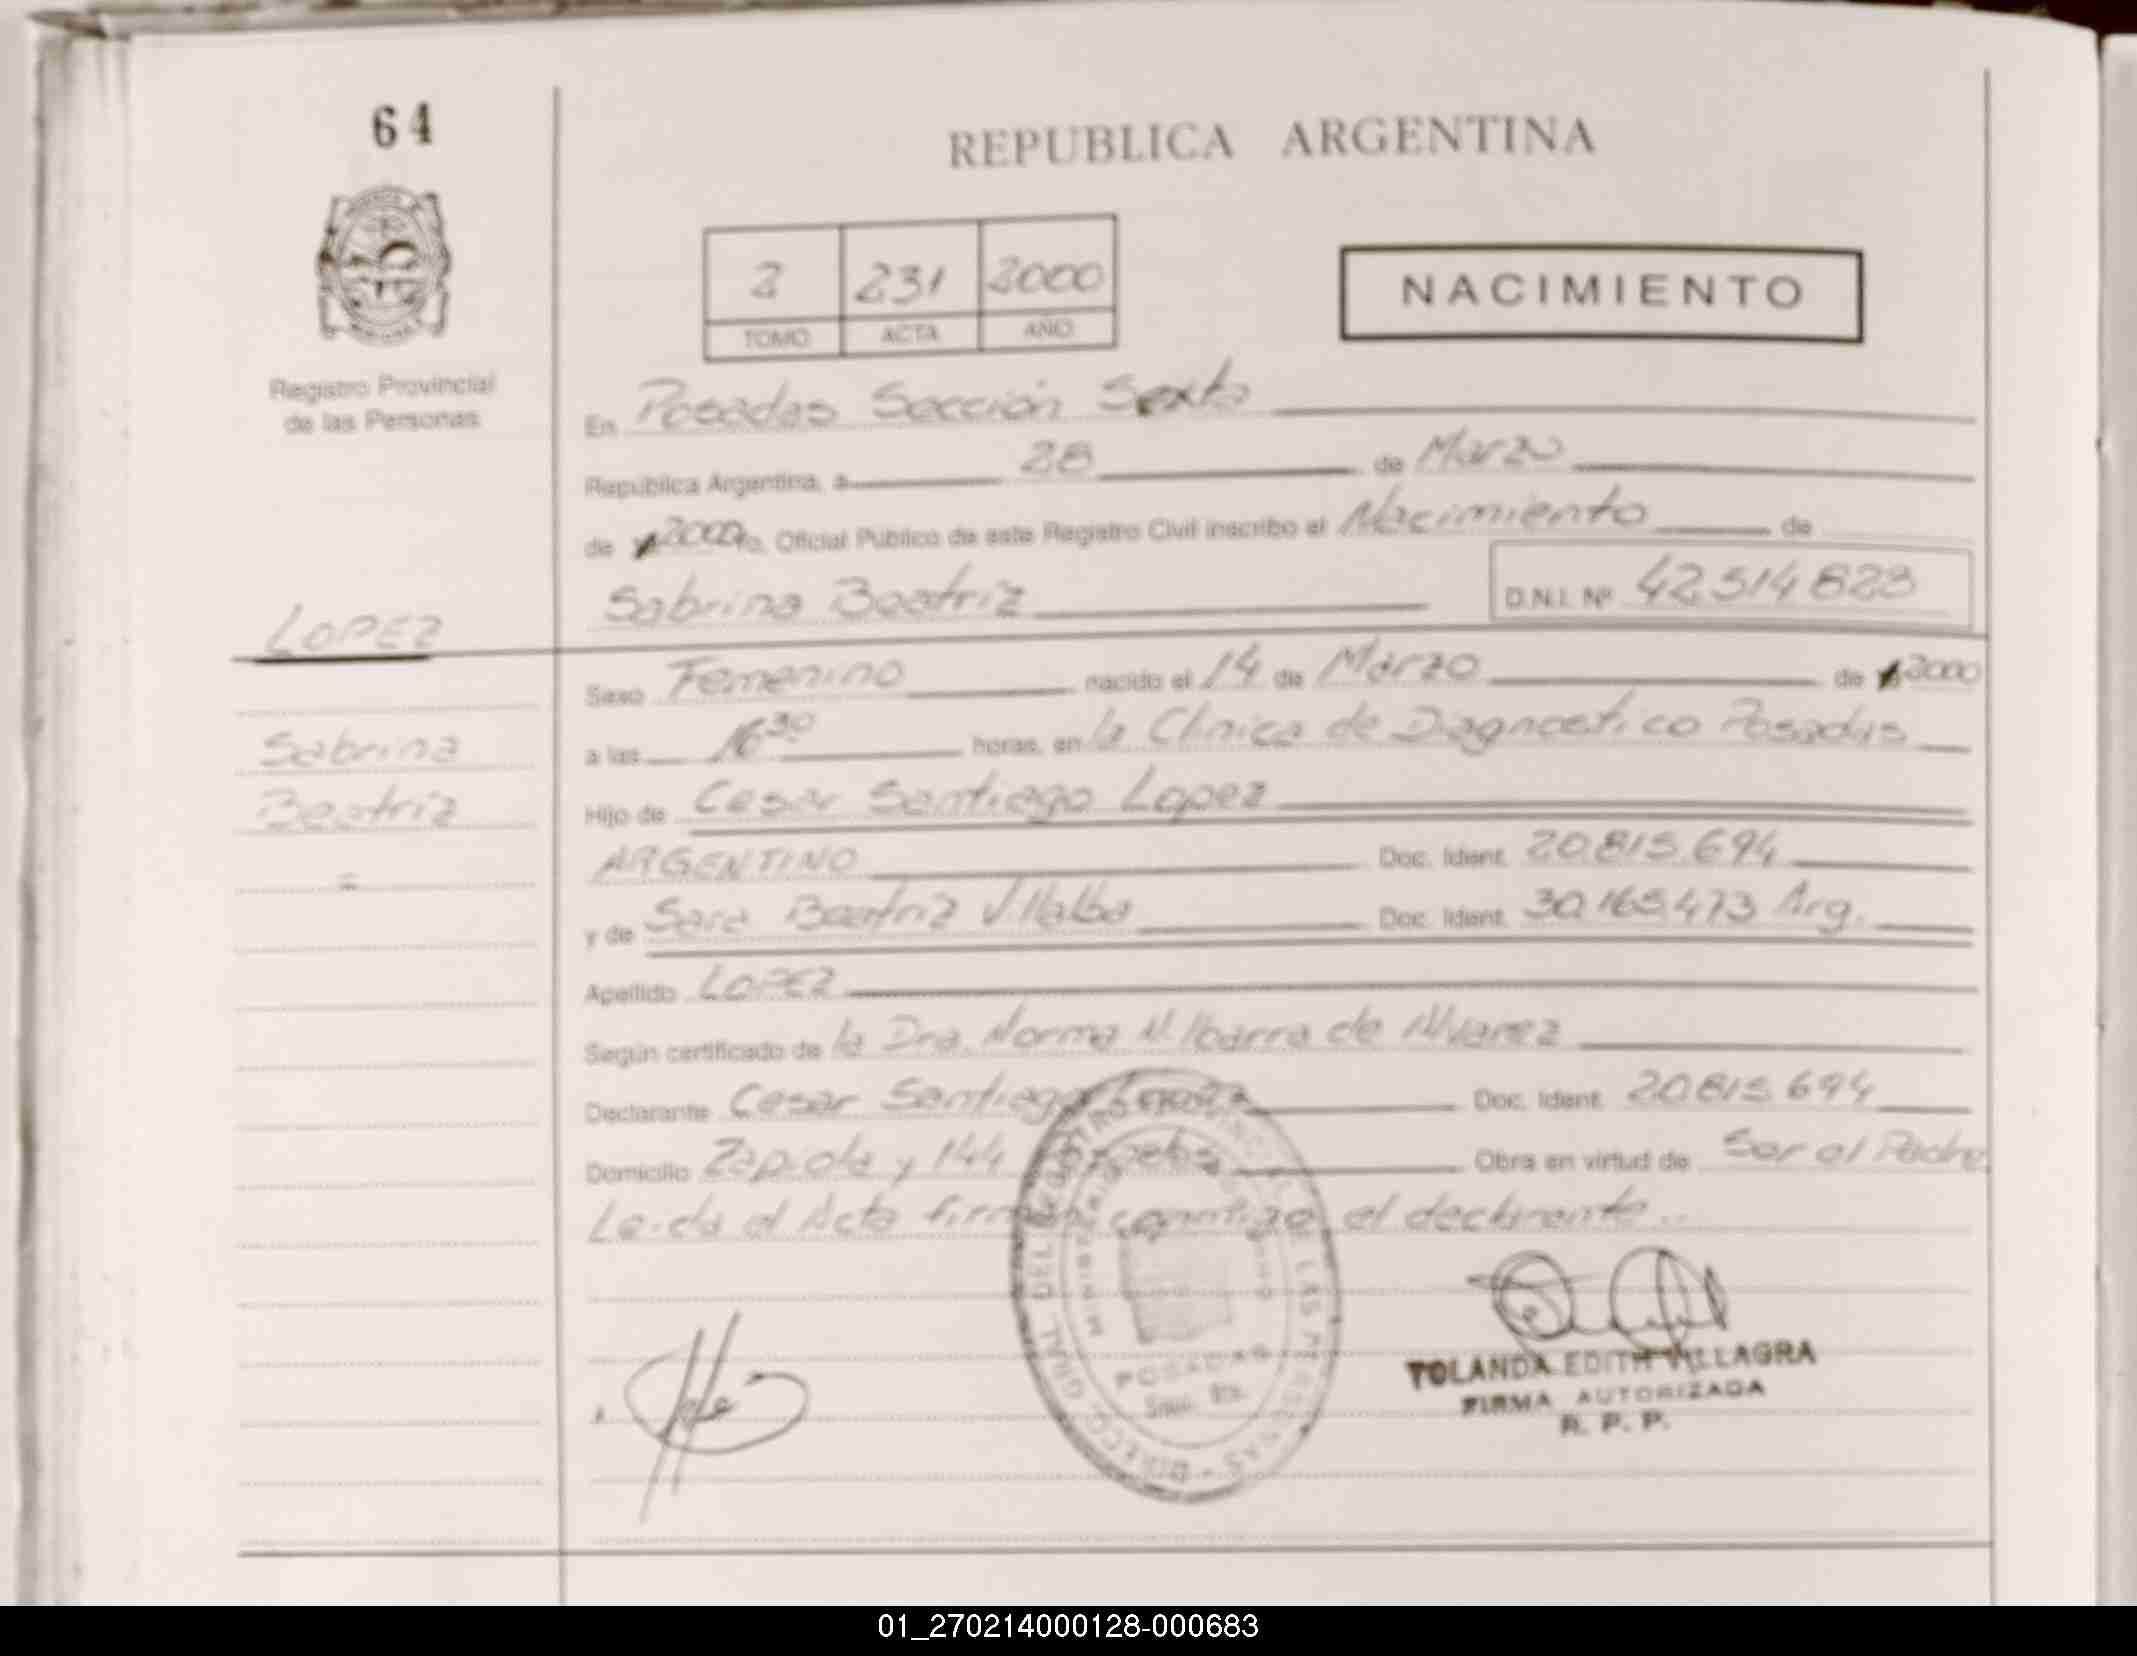 64
REPUBLICA ARGENTINA
2 231 2000
TOMO ACTA AÑO
NACIMIENTO
Registro Provincial
de las Personas
En Posadas Sección Sexta
República Argentina, a 28 de Marzo
de 2000 Yo, Oficial Público de este Registro Civil inscribo el Nacimiento de
Sabrina Beatriz D.N.I. Nº 42.514.823
LOPEZ
Sabrina
Beatriz
=
Sexo Femenino nacido el 14 de Marzo de 2000
a las 16 30 horas, en la Clinica de Diagnostico Posadas
Hijo de Cesar Santiago Lopez
ARGENTINO Doc. Ident. 20.815.694
y de Sara Beatriz Villalba Doc. Ident. 30.165.473 Arg.
Apellido LOPEZ
Según certificado de la Dra. Norma N. Ibarra de Alvarez
Declarante Cesar Santiago Lopez Doc. Ident. 20.815.694
Domicilio Zapiola y 144 Obra en virtud de Ser el Padre
Leida el Acta firman conmigo el declarante..
DIRECC. GRAL. DEL REGISTRO PROVINCIAL DE LAS PERSONAS
MINISTERIO DE GOBIERNO
POSADAS
YOLANDA EDITH VILLAGRA
FIRMA AUTORIZADA
R. P. P.
01_270214000128-000683